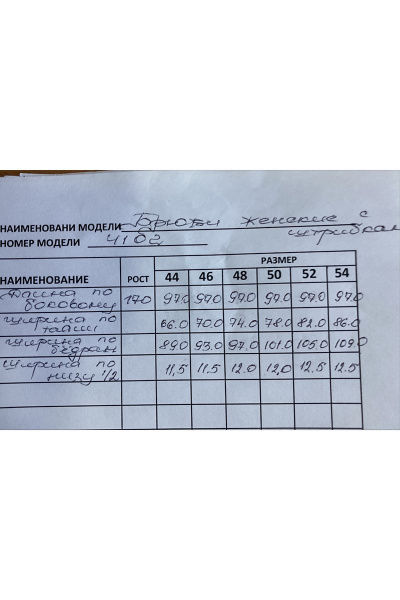 НАИМЕНОВАНИ МОДЕЛИ Брюки женские с
штрибкам
НОМЕР МОДЕЛИ 4102
РАЗМЕР
НАИМЕНОВАНИЕ РОСТ 44 46 48 50 52 54
Длина по
боковому 170 97.0 97.0 97.0 97.0 97.0 97.0
ширина по
талии 66.0 70.0 74.0 78.0 82.0 86.0
ширина по
бедрам 89.0 93.0 97.0 101.0 105.0 109.0
ширина по
низу 1/2 11,5 11.5 12.0 12,0 12.5 12.5